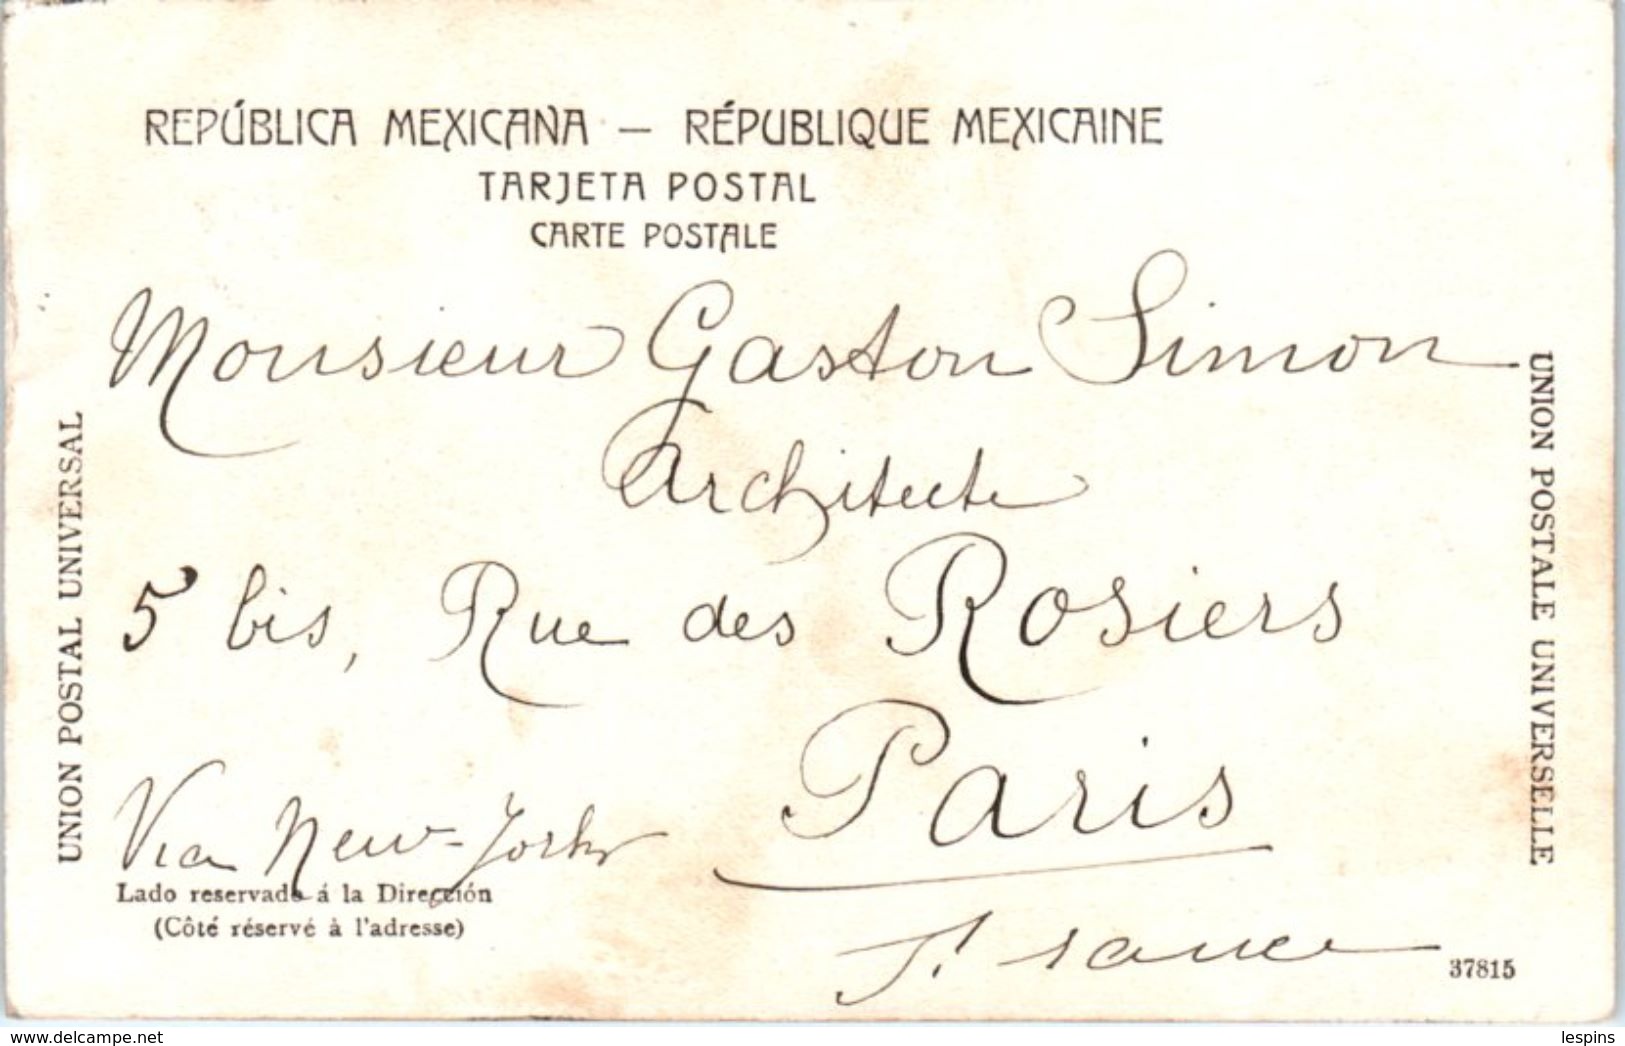 REPÚBLICA MEXICANA — RÉPUBLIQUE MEXICAINE
TARJETA POSTAL
CARTE POSTALE
UNION POSTAL UNIVERSAL
UNION POSTALE UNIVERSELLE
Monsieur Gaston Simon
Architecte
5 bis, Rue des Rosiers
Paris
Via New-York
France
Lado reservado á la Dirección
(Côté réservé à l'adresse)
37815
www.delcampe.net
lespins